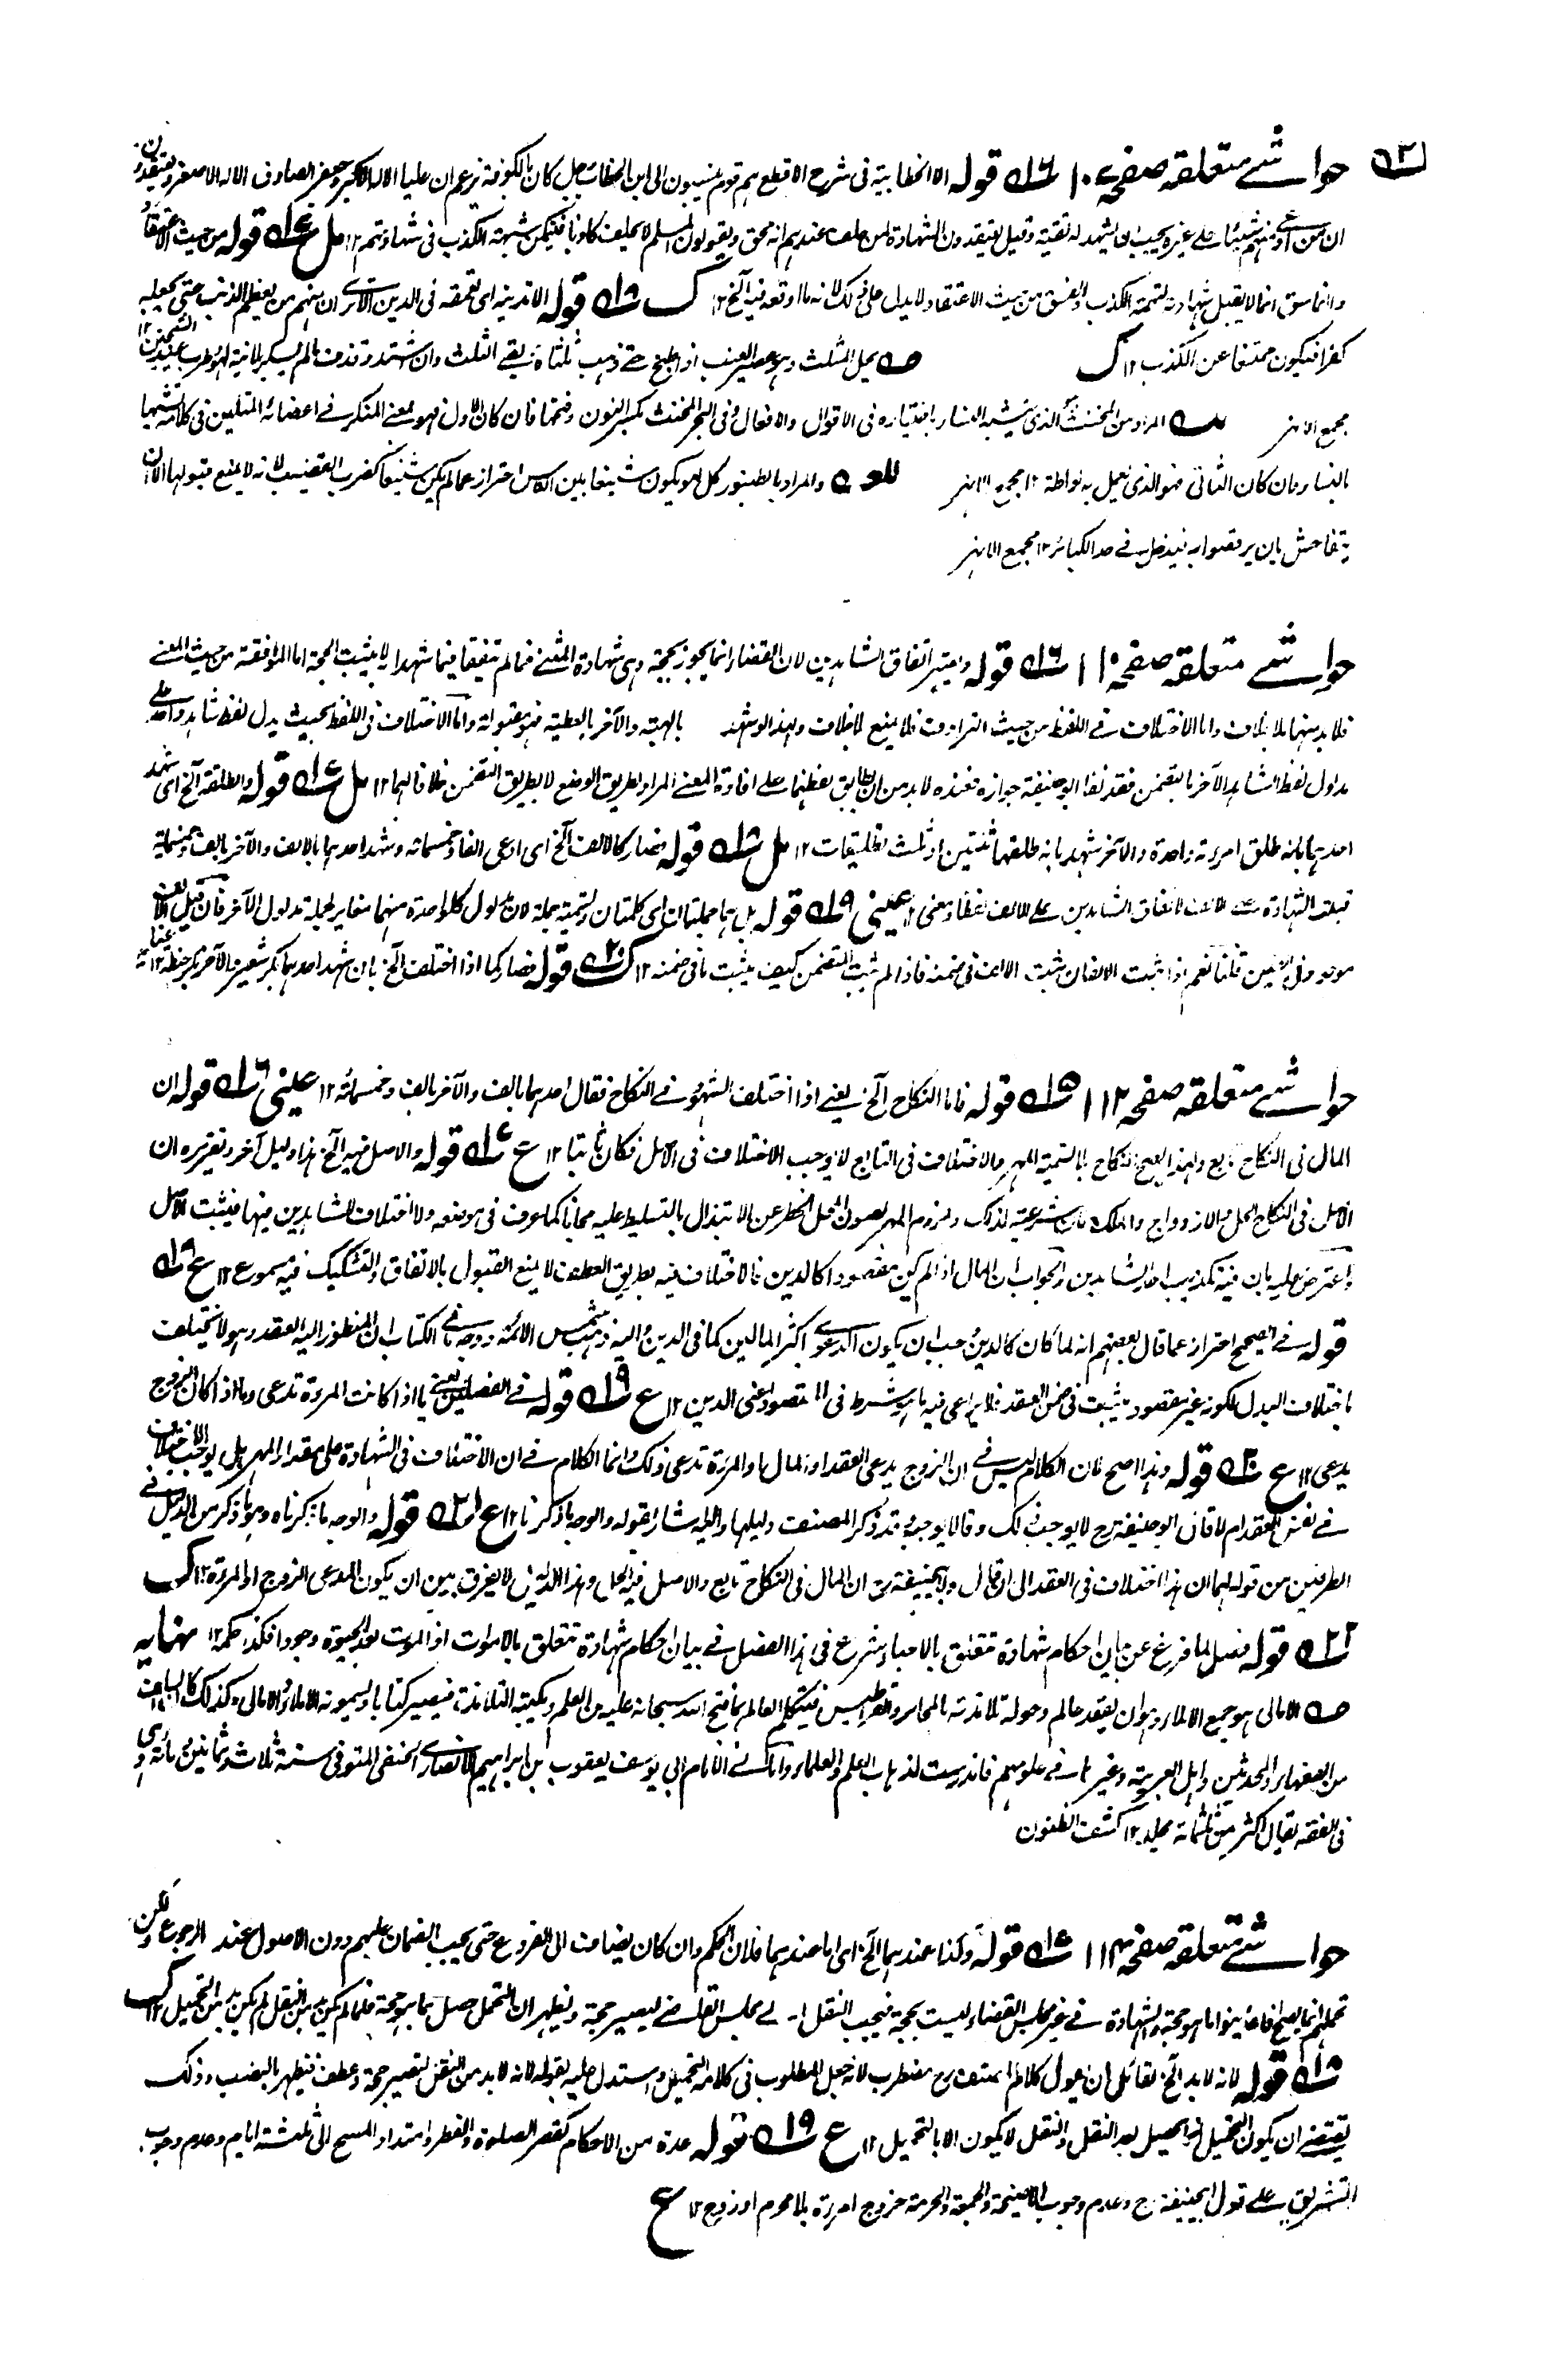 حواشی متعلقه صفحه ۱۰۷ ۱۶ قوله الا الخطابیة فی شرح الاقطع ہم قوم ینسبون الی ابن الخطاب رجل کان بالکوفة یزعم ان علیا الاله الاکبر وجعفر الصادق الاله الاصغر ویعتقدون
ان من ادعی منہم شیئا علی غیره یجب ان یشہد له بقیة وقیل یعتقدون الشہادة لمن حلف عندہم انه محق ویقولون المسلم لا یحلف کاذبا فتمکن شبہة الکذب فی شہادتہم ۱۲ مل ۱۷ قوله من حیث الاعتقاد
وانما سق انما لا یقبل شہادته لتہمة الکذب والفسق من حیث الاعتقاد لا یدل علی ذلک لانه ما اوقعه فیه الخ ۱۲ ک ۱۸ قوله الا تدینه ای تعمقه فی الدین الا تری ان منہم من یعظم الذنب حتی یجعله
کفرا فیکون ممتنعا عن الکذب ۱۲ ک ص یحل المثلث وہو عصیر العنب اذا طبخ حتی ذہب ثلثاه بقی الثلث وان اشتد وقذف ما لم یسکر بلا نیة لہو وطرب عند الشیخین ۱۲
مجمع الانہر المراد من المخنث الذی یتشبه النساء باختیاره فی الاقوال والافعال وفی البحر المخنث بکسر النون وفتحہا فان کان الاول فہو بمعنی المنکسر فی اعضائه المتلین فی کلامه تشبہا
بالنساء وان کان الثانی فہو الذی یعمل به لواطة ۱۲ مجمع الانہر والمراد بالطنبور کل لہو یکون شنیعا بین الناس احتراز عما لم یکن شنیعا کضرب القضیب لانه لا یمنع قبولہا الا ان
یتفاحش بان یرقصوا به فیدخل فی حد الکبائر ۱۲ مجمع الانہر
حواشی متعلقه صفحه ۱۱۰ ۱۶ قوله ویعتبر اتفاق الشاہدین لان القضاء انما یجوز بحجة وہی شہادة المثنی فما لم یتفقا فیما شہدا لا یثبت الحجة اما الموافقة من حیث المعنی
فلا بد منہا بلا خلاف واما الاختلاف فی اللفظ من حیث الترادف فلا یمنع بلا خلاف ولہذا لو شہد بالہبة والآخر بالعطیة فہو مقبولة واما الاختلاف فی اللفظ بحیث یدل لفظ شاہد واحد علی
مدلول لفظ الشاہد الآخر بالتضمن فقد نفا ابو حنیفة جوازه فعنده لا بد من ان یطابق لفظہما علی افادة المعنی المراد بطریق الوضع لا بطریق التضمن خلافا لہما ۱۲ مل ۱۷ قوله والطلقة الخ ای شہد
احدہما بانه طلق امرءته واحدة والآخر شہد بانه طلقہا ثنتین او ثلث تطلیقات ۱۲ مل ۱۸ قوله فصار کالالف الخ ای ادعی الفا وخمسمائة وشہد احدہما بالالف والآخر بالف وخمسمائة
قبلت الشہادة علی الالف لاتفاق الشاہدین علی الالف لفظا ومعنی ۱۲ عینی ۱۹ قوله بل ہما جملتان ای کلمتان والتسمیة بجملة لان مدلول کل واحدة منہما مغایر لجملة مدلول الآخر فان قیل الالف
موجود فی الالفین قلنا نعم اذا ثبت الالفان ثبت الالف فی ضمنه فاذا لم یثبت المتضمن کیف یثبت ما فی ضمنه ۱۲ ک ۲۰ قوله فصار کما اذا اختلف الخ بان شہد احدہما بکر شعیر والآخر بکر حنطة ۱۲ عنایة
حواشی متعلقه صفحه ۱۱۲ ۱۵ قوله فاما النکاح الخ یعنی اذا اختلف الشہود فی النکاح فقال احدہما بالف والآخر بالف وخمسمائة ۱۲ عینی ۱۶ قوله ان
المال فی النکاح تابع ولہذا یصح النکاح بلا تسمیة المہر والاختلاف فی التابع لا یوجب الاختلاف فی الاصل فکان ثابتا ۱۲ ع ۱۷ قوله والاصل فیه الخ ہذا دلیل آخر وتقریره ان
الاصل فی النکاح الحل والازدواج والملک لان شرعیته لذلک ولزوم المہر لصون المحل الخطر عن الابتذال بالتسلیط علیه مجانا کما عرف فی موضعه ولا اختلاف للشاہدین فیہا فیثبت الاصل
واعترض علیه بان فیه تکذیب احد الشاہدین والجواب ان المال اذا لم یکن مقصودا کالدین فالاختلاف فیه بطریق العطف لا یمنع القبول بالاتفاق والتشکیک فیه مسموع ۱۲ ع ۱۸
قوله فی الصحیح احتراز عما قال بعضہم انه لما کان کالدین وجب ان یکون الدعوی اکثر المالین کما فی الدین والیه ذہب شمس الائمة ووجه ما فی الکتاب ان المنظور الیه العقد وہو لا یختلف
باختلاف البدل لکونه غیر مقصود یثبت فی ضمن العقد فلا یراعی فیه ما یشترط فی المقصود اعنی الدین ۱۲ ع ۱۹ قوله فی الفصلین یعنی ما اذا کانت المرءة تدعی وما اذا کان الزوج
یدعی ۱۲ ع ۲۰ قوله وہذا اصح فان الکلام لیس فی ان الزوج یدعی العقد او المال او المرءة تدعی ذلک وانما الکلام فی ان الاختلاف فی الشہادة علی مقدار المہر ہل یوجب الاختلاف
فی نفس العقد ام لا قال ابو حنیفة رح لا یوجب ذلک وقالا یوجبه وقد ذکر المصنف دلیلہا والیه اشار بقوله والوجه ما ذکرنا ۱۲ ع ۲۱ قوله والوجه ما ذکرناه وہو ما ذکر من الدلیل فی
الطرفین من قوله لہما ان ہذا اختلاف فی العقد الی ان قال ولابی حنیفة رح ان المال فی النکاح تابع والاصل فیه الحل وہذا الدلیل لا یفرق بین ان یکون المدعی الزوج او المرءة ۱۲ ک
۲۲ قوله فصل لما فرغ عن بیان احکام شہادة تتعلق بالاحیاء شرع فی ہذا الفصل فی بیان احکام شہادة تتعلق بالاموات اذ الموت بعد الحیوة وجودا فکذا حکمه ۱۲ نہایه
ص الامالی ہو جمع الاملاء وہو ان یقعد عالم وحوله تلامذته بالمحابر والقراطیس فیتکلم العالم بما فتح الله سبحانه علیه من العلم ویکتبه التلامذة فیصیر کتابا ویسمونه الاملاء والامالی وکذلک کان السلف
من الفقہاء والمحدثین واہل العربیة وغیرہا فی علومہم فاندرست لذہاب العلم والعلماء وامالی الامام ابی یوسف یعقوب بن ابراہیم الانصاری الحنفی المتوفی سنة ثلاث وثمانین ومائة وہی
فی الفقه یقال اکثر من ثلثمائة مجلد ۱۲ کشف الظنون
حواشی متعلقه صفحه ۱۱۳ ۱۷ قوله وکذا عندہما الخ ای اما عندہما فلان الحکم وان کان یضاف الی الفروع حتی یجب الضمان علیہم دون الاصول عند الرجوع ولکن
تحملہم انما یصح اذا عاینوا ما ہو حجة والشہادة فی غیر مجلس القضاء لیست بحجة فیجب النقل الی مجلس القاضی لیصیر حجة ویظہر ان التحمل حصل بما ہو حجة فلما لم یکن بد من النقل لم یکن بد من التحمیل ۱۲ ک
۱۸ قوله لانه لا بد الخ لقائل ان یقول کلام المصنف رح مضطرب لانه جعل المطلوب فی کلامه التحمیل واستدل علیه بقوله لانه لا بد من النقل لتصیر حجة وعطف فیظہر بالنصب وذلک
یقتضی ان یکون التحمیل انما یحصل بعد النقل والنقل لا یکون الا بالتحمیل ۱۲ ع ۱۹ قوله عدة من الاحکام کقصر الصلوة والفطر وامتداد المسح الی ثلثة ایام وعدم وجوب
التشریق علی قول ابی حنیفة رح وعدم وجوب الاضحیة والجمعة والحرمة خروج امرءة بلا محرم او زوج ۱۲ ع